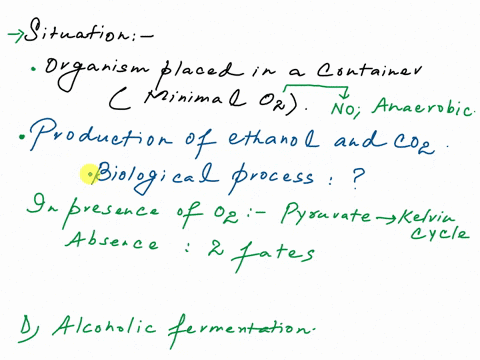 → Situation:-
• Organism placed in a Container
(Minimal O2). NO; Anaerobic.
• Production of ethanol and CO2.
• Biological process : ?
In presence of O2:- Pyruvate → Kelvin
Cycle
Absence : 2 fates
D, Alcoholic fermentation.